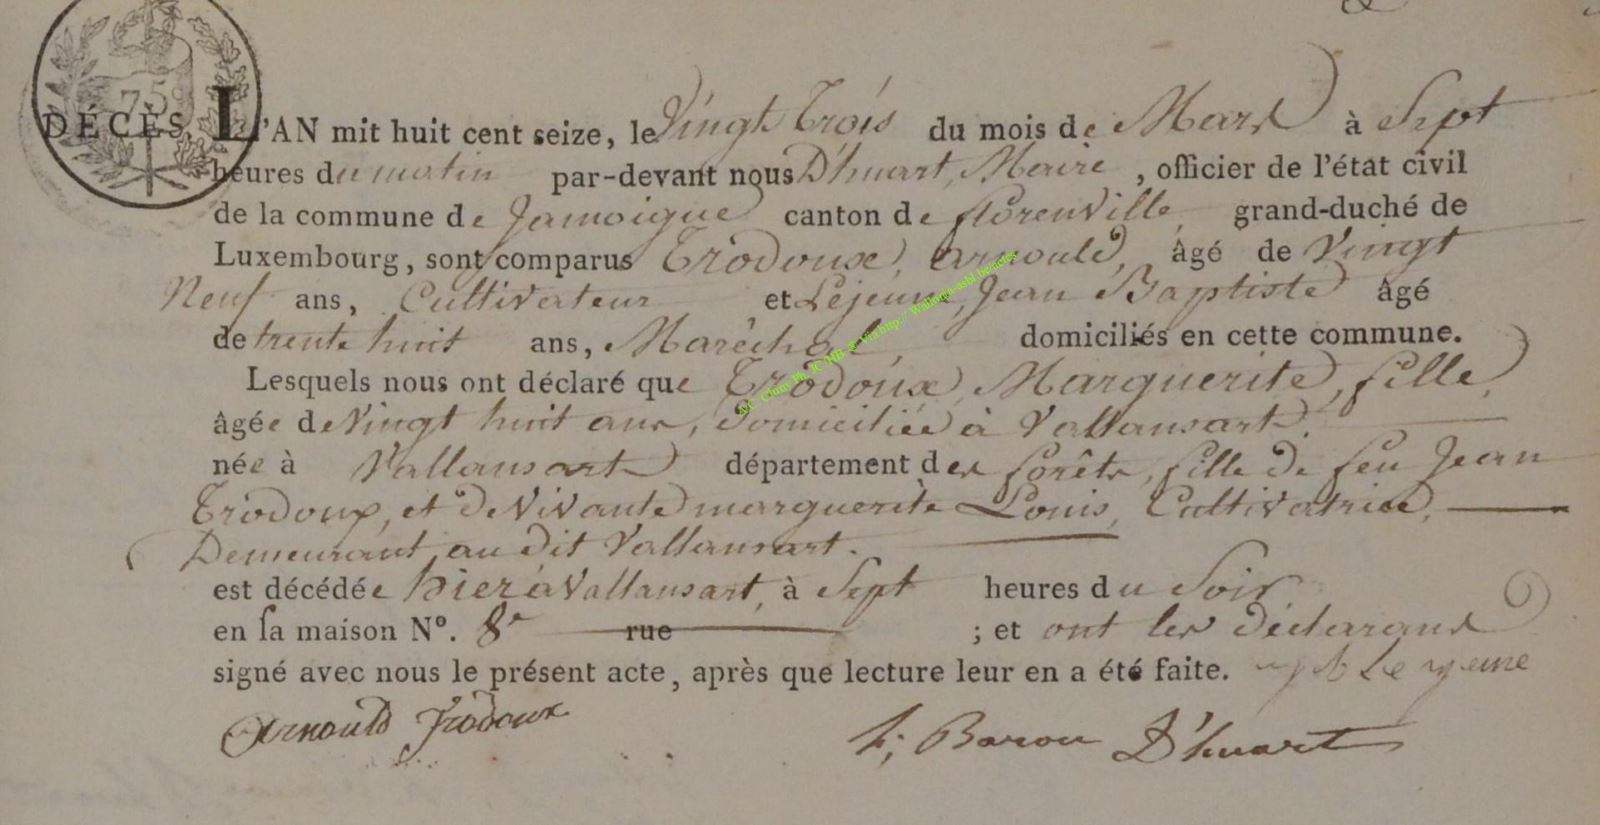 75
DÉCÈS. L'AN mit huit cent seize, le Vingt Trois du mois de Mars à Sept
heures du matin par-devant nous D'huart, Maire, officier de l'état civil
de la commune de Jamoigne canton de florenville grand-duché de
Luxembourg, sont comparus Trodoux, arnould, âgé de Vingt
Neuf ans, Cultivateur et Lejeune, Jean Baptiste âgé
de trente huit ans, Maréchal, domiciliés en cette commune.
Lesquels nous ont déclaré que Trodoux, Marguerite, fille,
âgée de Vingt huit ans, Domiciliée à Vallansart
née à Vallansart département des forêts, fille de feu Jean
Trodoux, et de Vivante marguerite Louis, Cultivatrice,
Demeurant au dit Vallansart.
est décédée hier à Vallansart, à Sept heures du Soir
en sa maison N°. 8 rue ; et ont les déclarans
signé avec nous le présent acte, après que lecture leur en a été faite.
Arnould Trodoux h; Baron D'huart